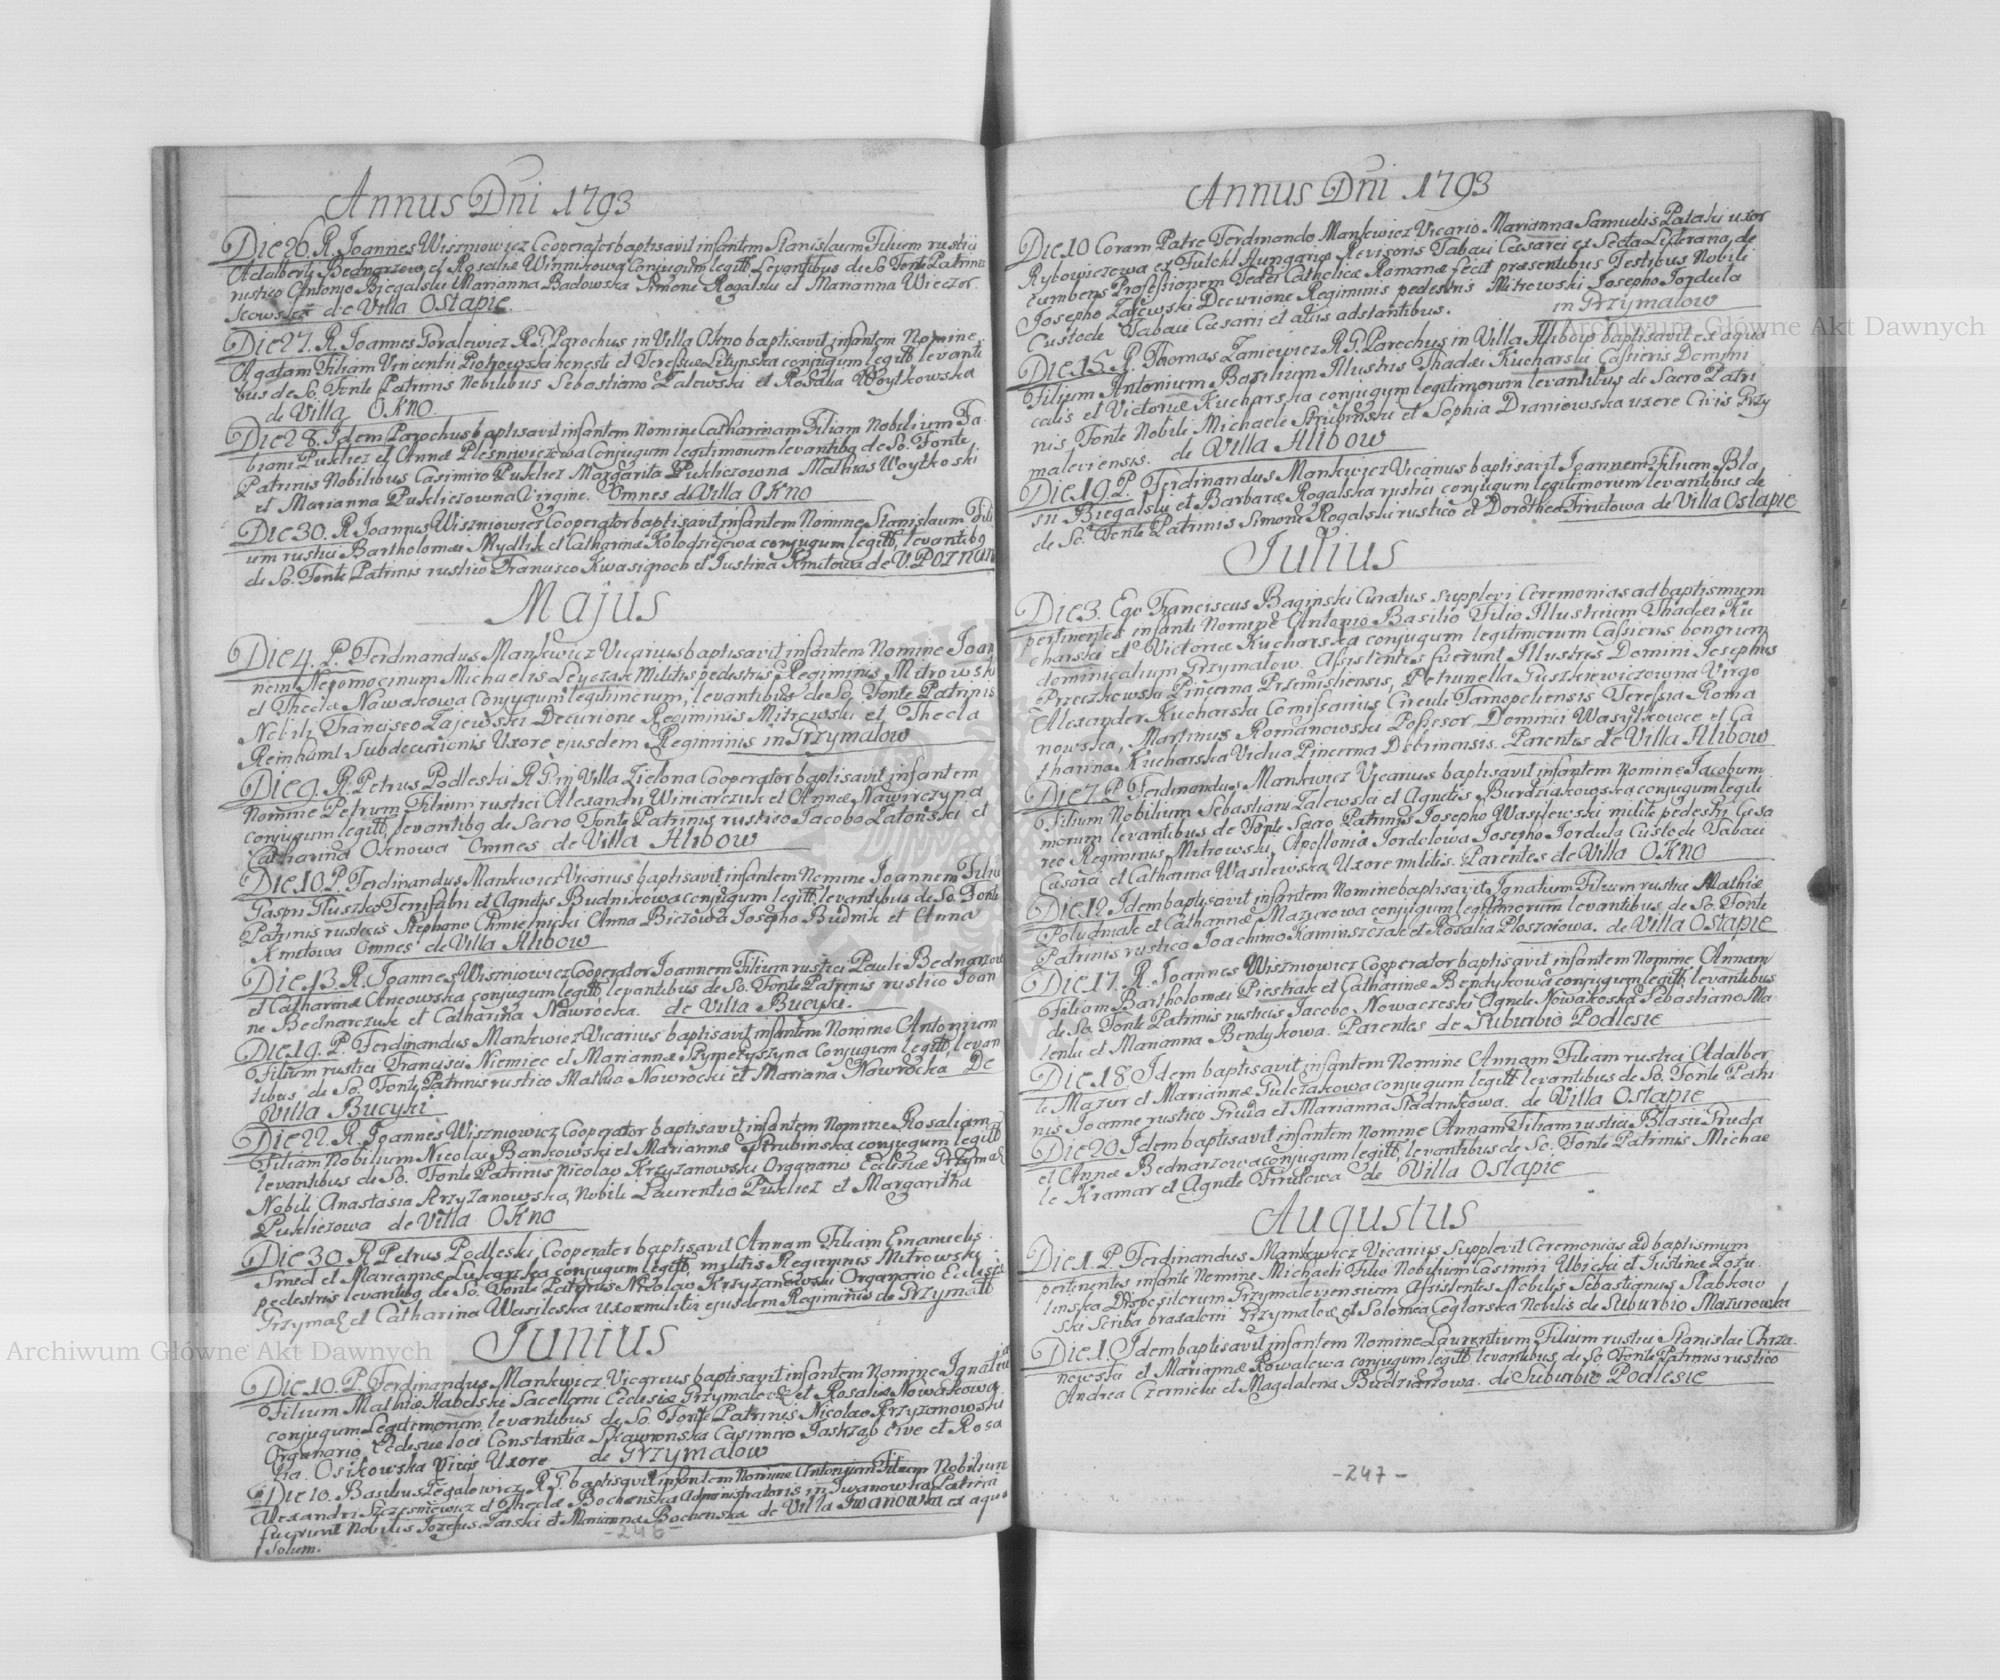 Annus Dni 1793
Die 26. R. Joannes Wiszniowicz Cooperator baptisavit infantem Stanislaum Filium rustici
Adalberti Bednarzew et Rosaliæ Winnikowa Conjugum legitt. Levantibus de So. Fonte Patrinis
rustico Antonio Biegalski Marianna Badowska Simone Rogalski et Marianna Wieczor
kowska de Villa Ostapie.
Die 27. R. Joannes Toralewicz R.G. Parochus in Villa Okno baptisavit infantem Nomine
Agatam Filiam Vincentii Piotrowski honesti et Teressæ Litynska conjugum legitt. levanti
bus de So. Fonte Patrinis Nobilibus Sebastiano Zalewski et Rosalia Woytkowska
de Villa OKNO.
Die 28. Idem Parochus baptisavit infantem Nomine Catharinam Filiam Nobilium Fa
biani Puklicz et Annæ Plesniwiczowa Conjugum legitimorum levantibq de So. Fonte
Patrinis Nobilibus Casimiro Puklicz Margarita Pukliczowna Mathias Woytkoski
et Marianna Pukliczowna Virgine. Omnes de Villa OKNO
Die 30. R. Joannes Wiszniowicz Cooperator baptisavit infantem Nomine Stanislaum Fili
um rustici Bartholomæi Mydlik et Catharinæ Kolodzieiewa conjugum legitt. levantibq
de So. Fonte Patrinis rustico Francisco Kwasigroch et Justina Kmitowa de V. Poznan
Majus
Die 4. P. Ferdinandus Mankiewicz Vicarius baptisavit infantem Nomine Joan
nem Nepomocinum Michaelis Leyczak Militis pedestris Regiminis Mitrowski
et Thecla Nawakowa Conjugum legitimorum, levantibus de So. Fonte Patrinis
Nobili Francisco Zajewski Decurione Regiminis Mitrowski et Thecla
Reinhaml Subdecurionis Uxore ejusdem Regiminis in Grzymalow
Die 9. R. Petrus Podleski R.G. in Villa Zielona Cooperator baptisavit infantem
Nomine Petrum Filium rustici Alexandri Winiarczuk et Annæ Nawirczyna
conjugum legitt. levantibq de Sacro Fonte Patrinis rustico Jacobo Latonski et
Catharina Oknowa Omnes de Villa Hlibow
Die 10. P. Ferdinandus Mankiewicz Vicarius baptisavit infantem Nomine Joannem Filiu
Gaspri Gluszko Ferrifabri et Agnetis Budnikowa conjugum legitt. levantibus de So. Fonte
Patrinis rusticis Stephano Chmielnicki Anna Biczowa Josepho Budnik et Anna
Kmitowa Omnes de Villa Hlibow
Die 13. R. Joannes Wiszniowicz Cooperator Joannem Filium rustici Pauli Bednarzow
et Catharinæ Ancowska conjugum legitt. levantibus de So. Fonte Patrinis rustico Joan
ne Bednarczuk et Catharina Nawrocka. de Villa Bucyki.
Die 19. P. Ferdinandus Mankiewicz Vicarius baptisavit infantem Nomine Antonium
Filium rustici Francisci Niemiec et Mariannæ Szymczyszyna Conjugum legitt. levan
tibus de So. Fonte Patrinis rustico Mathia Nawrocki et Mariana Nawrocka De
Villa Bucyki
Die 22. R. Joannes Wiszniowicz Cooperator baptisavit infantem Nomine Rosaliam
Filiam Nobilium Nicolai Bankowski et Mariannæ Strubinska conjugum legitt
levantibus de So. Fonte Patrinis Nicolao Krzyzanowski Organario Ecclesiæ Grzymal
Nobili Anastasia Krzyzanowska, Nobili Laurentio Puklicz et Margaritha
Pukliczowa de Villa OKNO
Die 30. R. Petrus Podleski, Cooperator baptisavit Annam Filiam Emanuelis
Smed et Mariannæ Luscanska conjugum legitt. militis Regiminis Mitrowski
pedestris levantibq de So. Fonte Patrinis Nicolao Krzyzanowski Organario Ecclesiæ
Grzymal et Catharina Wasileska uxore militis ejusdem Regiminis de Grzymall
Junius
Die 10. P. Ferdinandus Mankiewicz Vicarius baptisavit infantem Nomine Ignatiu
Filium Mathiæ Habelski Sacellani Ecclesiæ Grzymalov et Rosaliæ Nowakowa
conjugum Legitimorum levantibus de So. Fonte Patrinis Nicolao Krzyzanowski
Organario Ecclesiæ loci Constantia Skawronska Casimiro Jastrząb cive et Rosa
lia Osikowska Civis Uxore de Grzymalow
Die 10. Basilius Tegalowicz R.G. baptisavit infantem Nomine Antonium Filium Nobilium
Alexandri Szczesniewicz et Theclæ Bochenska Administratoris in Jwanowka Patrini
fuerunt Nobilis Josefus Zarski et Marianna Bochenska de Villa Jwanowka ex aqua
solum.
-246-
Annus Dni 1793
Die 10 Coram Patre Ferdinando Mankiewicz Vicario Marianna Samuelis Pataki uxor
Rybowiczowa ex Fulekl Hungariæ Revisoris Tabaci Cæsarei ex Secta Luterana, de
cumbens Professionem Fidei Catholicæ Romanæ fecit præsentibus Testibus Nobili
Josepho Zalewski Decurione Regiminis pedestris Mitrowski Josepho Jordula
Custode Tabaci Cæsarei et aliis adstantibus. in Grzymalow
Die 15. R. Thomas Zaniewicz R.G. Parochus in Villa Hlibow baptisavit ex aqua
Filium Antonium Basilium Illustris Thadæi Kucharski Cassieris Domini
calis et Victoriæ Kucharska conjugum legitimorum levantibus de Sacro Patri
nis Fonte Nobili Michaele Strubinski et Sophia Draniowska uxore Civis Grzy
maloviensis. de Villa Hlibow
Die 19. P. Ferdinandus Mankiewicz Vicarius baptisavit Joannem Filium Bla
sii Biegalski et Barbaræ Rogalska rustici conjugum legitimorum levantibus de
de So. Fonte Patrinis Simone Rogalski rustico et Dorothea Firutowa de Villa Ostapie
Julius
Die 3. Ego Franciscus Baginski Curatus Supplevi Ceremonias ad baptismum
pertinentes infanti Nomine Antonio Basilio Filio Illustrium Thadæi Ku
charski et Victoriæ Kucharska conjugum legitimorum Cassieris bonorum
dominicalium Grzymalow. Assistentes fuerunt Illustres Domini Josephus
Przeczkowski Pincerna Przemisliensis, Petrunella Guszkiewiczowna Virgo
Alexander Kucharski Comissarius Circuli Tarnopoliensis Teressia Roma
nowska, Martinus Romanowski Possesor Dominii Wasylkowce et Ca
tharina Kucharska Vidua Pincerna Dobrinensis. Parentes de Villa Hlibow
Die 7. P. Ferdinandus Mankiewicz Vicarius baptisavit infantem Nomine Jacobum
Filium Nobilium Sebastiani Zalewski et Agnetis Burdziakowska conjugum legiti
morum levantibus de Fonte Sacro Patrinis Josepho Wasilewski milite pedestri Cæsa
reo Regiminis Mitrowski, Apollonia Jordolowa Josepho Jordula Custode Tabaci
Cæsarei et Catharina Wasilewska Uxore militis. Parentes de Villa OKNO
Die 12. Idem baptisavit infantem Nomine baptisavit Ignatium Filium rustici Mathiæ
Poludniak et Catharinæ Mazurowa conjugum legitimorum levantibus de So. Fonte
Patrinis rustico Joachimo Kaminszczak et Rozalia Ploszaiowa. de Villa Ostapie
Die 17. R. Joannes Wiszniowicz Cooperator baptisavit infantem Nomine Annam
Filiam Bartholomæi Piestrak et Catharinæ Bendykowa conjugum legitt. levantibus
de So. Fonte Patrinis rusticis Jacobo Nowaczeski Agnete Nowakoska Sebastiano Ma
lenlu et Marianna Bendykowa. Parentes de Suburbio Podlesie
Die 18. Idem baptisavit infantem Nomine Annam Filiam rustici Adalber
ti Mazur et Mariannæ Gulczakowa conjugum legitt levantibus de So. Fonte Patri
nis Joanne rustico Gruda et Marianna Stadnikowa. de Villa Ostapie
Die 20. Idem baptisavit infantem Nomine Annam Filiam rustici Blasii Gruda
et Annæ Bednarzowa conjugum legitt. levantibus de So. Fonte Patrinis Michae
le Kramar et Agnete Firutowa de Villa Ostapie
Augustus
Die 1. P. Ferdinandus Mankiewicz Vicarius Supplevit Ceremonias ad baptismum
pertinentes infante Nomine Michaeli Filio Nobilium Casimiri Ubicki et Justinæ Lozu
linska Dispositorum Grzymaloviensium Assistentes Nobilis Sebastianus Slabkow
ski Scriba braxatorii Grzymalow et Solomea Ceglarska Nobilis de Suburbio Mazurowka
Die 1. Idem baptisavit infantem Nomine Laurentium Filium rustici Stanislai Chrza
nowski et Mariannæ Kowalewa conjugum legitt. levantibus de So Fonte Patrinis rustico
Andrea Czernicki et Magdalena Budziarzowa. de Suburbio Podlesie
-247-
Archiwum Główne Akt Dawnych
Archiwum Główne Akt Dawnych